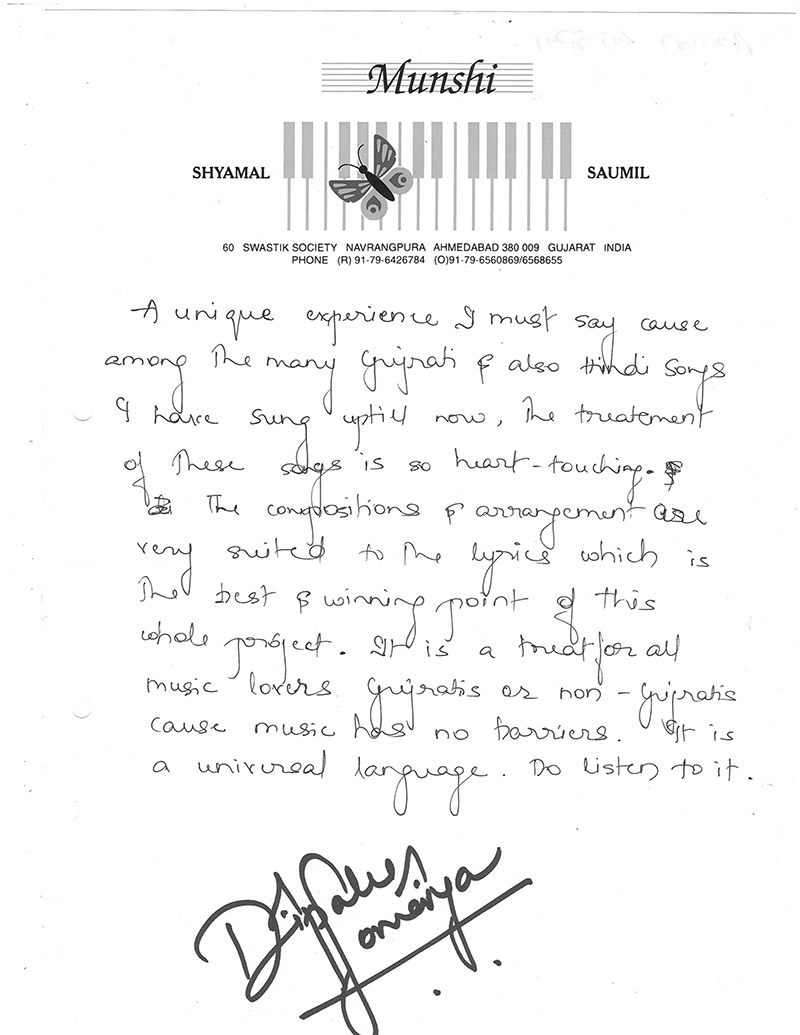 Munshi
SHYAMAL
SAUMIL
60 SWASTIK SOCIETY NAVRANGPURA AHMEDABAD 380 009 GUJARAT INDIA
PHONE (R) 91-79-6426784 (O)91-79-6560869/6568655
A unique experience I must say cause
among The many Gujrati & also Hindi Songs
I have sung uptill now, The treatement
of These songs is so heart-touching.
The compositions & arrangement are
very suited to The lyrics which is
The best & winning point of this
whole project. It is a treat for all
music lovers Gujratis or non-Gujratis
cause music has no barriers. It is
a universal language. Do listen to it.